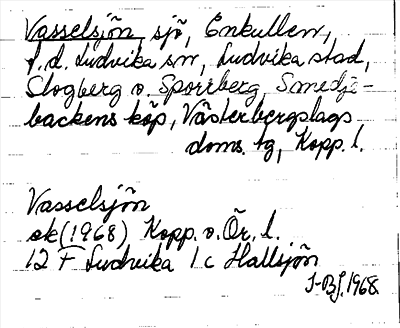 Vasselsjön sjö, Enkullen,
f.d. Ludvika sn, Ludvika stad,
Clogberg o. Sporrberg, Smedje-
backens köp, Västerbergslags
doms. tg, Kopp. l.
Vasselsjön
ek (1968) Kopp. o. Ör. l.
12 F Ludvika 1 c Hallsjön
1968